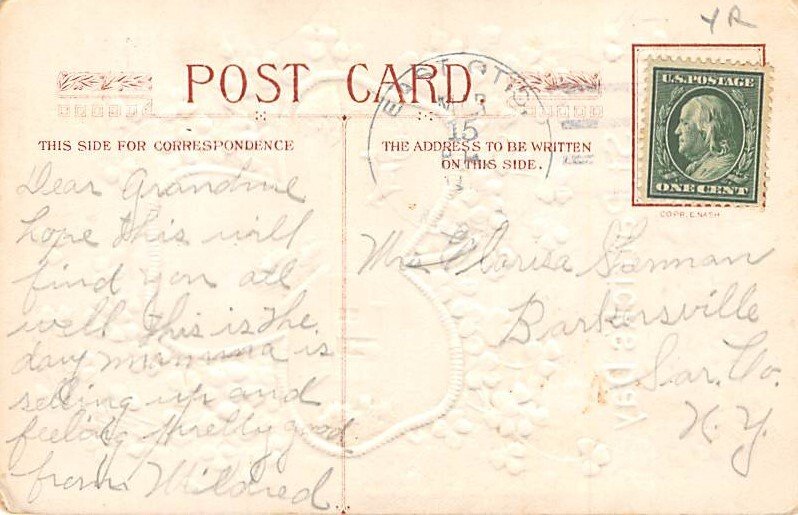 YR
POST CARD
EAST OTIS
MAR
15
U.S. POSTAGE
ONE CENT
COPR. E. NASH
THIS SIDE FOR CORRESPONDENCE
THE ADDRESS TO BE WRITTEN
ON THIS SIDE.
Dear Grandma
hope this will
find you all
well This is the
day mamma is
setting up and
feeling pretty good
from Mildred.
Mrs Clarisa Sherman
Barkersville
Sar. Co.
N. Y.